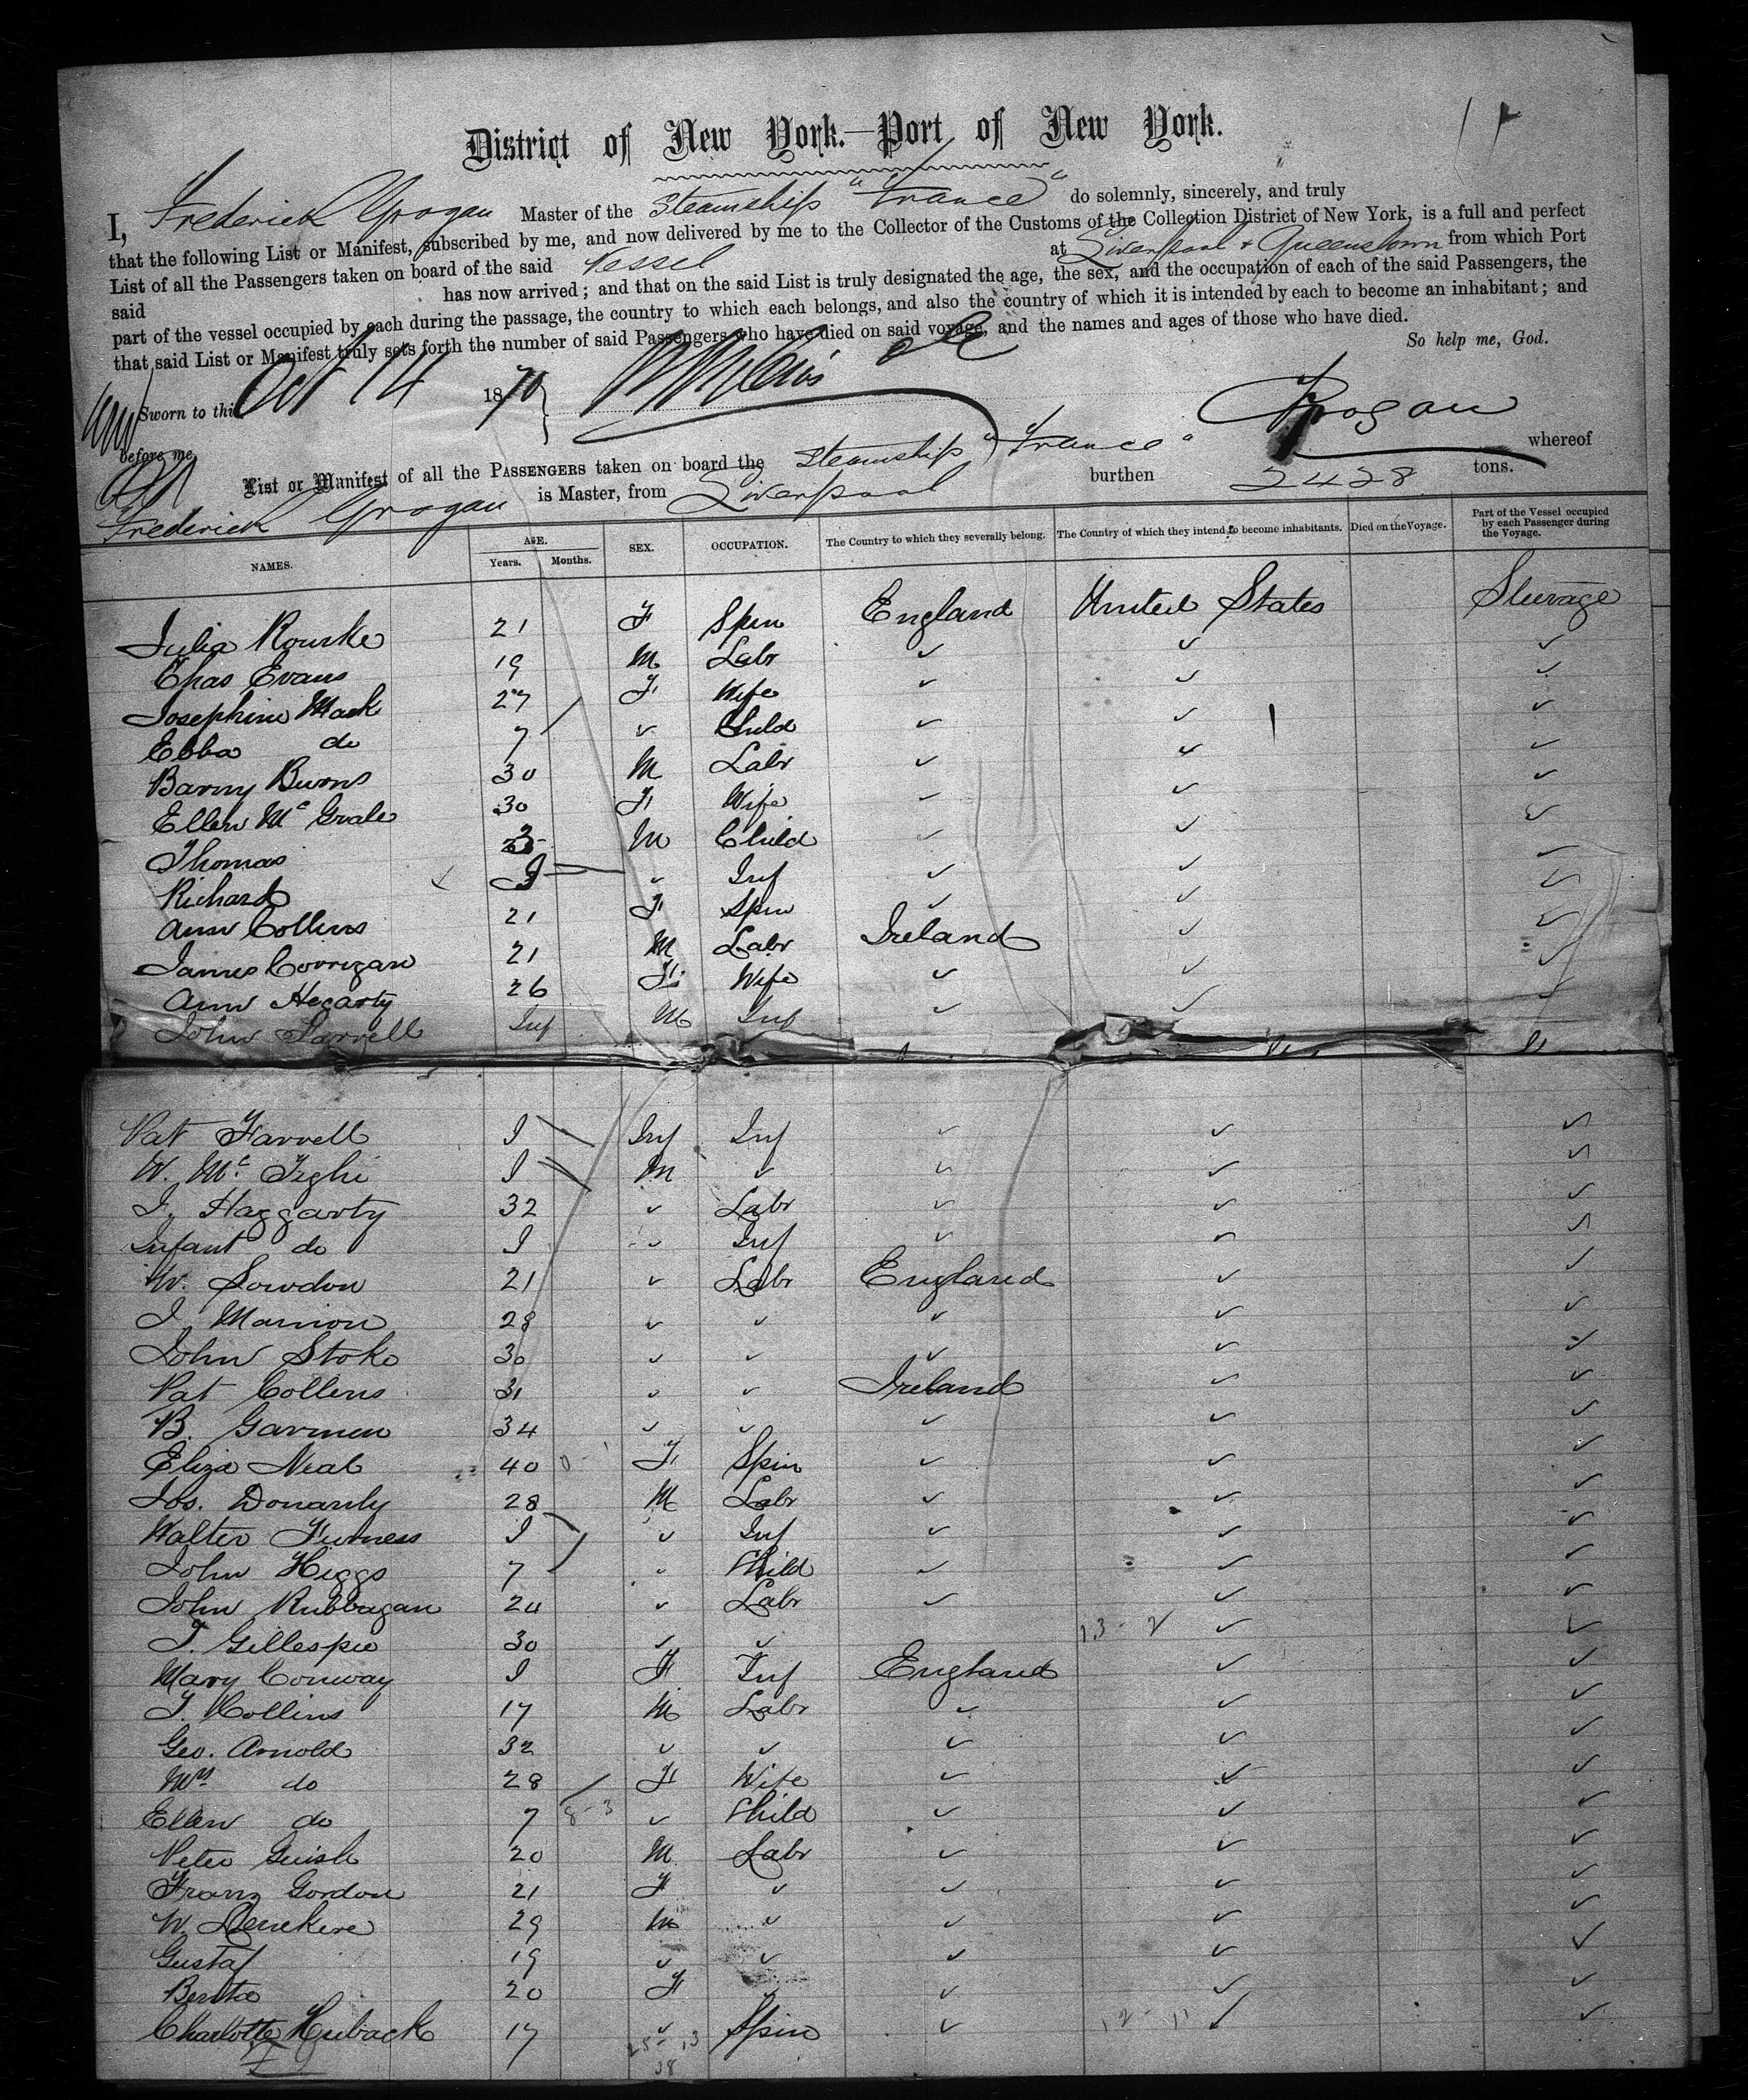 District of New York.—Port of New York.
I, Frederick Grogan Master of the Steamship "France" do solemnly, sincerely, and truly
that the following List or Manifest, subscribed by me, and now delivered by me to the Collector of the Customs of the Collection District of New York, is a full and perfect
List of all the Passengers taken on board of the said Vessel at Liverpool & Queenstown from which Port
said has now arrived; and that on the said List is truly designated the age, the sex, and the occupation of each of the said Passengers, the
part of the vessel occupied by each during the passage, the country to which each belongs, and also the country of which it is intended by each to become an inhabitant; and
that said List or Manifest truly sets forth the number of said Passengers who have died on said voyage, and the names and ages of those who have died.
So help me, God.
Sworn to this Oct 14 1870 Grogan
before me
List or Manifest of all the PASSENGERS taken on board the Steamship "France" whereof
Frederick Grogan is Master, from Liverpool burthen 2428 tons.
NAMES. AGE. Years. Months. SEX. OCCUPATION. The Country to which they severally belong. The Country of which they intend to become inhabitants. Died on the Voyage. Part of the Vessel occupied by each Passenger during the Voyage.
Julia Rourke 21 F Spin England United States Steerage
Chas Evans 19 M Labr ✓ ✓ ✓
Josephine Mack 27 F Wife ✓ ✓ ✓
Ebba do 7 ✓ Child ✓ ✓ ✓
Barny Burns 30 M Labr ✓ ✓ ✓
Ellen Mc Grale 30 F Wife ✓ ✓ ✓
Thomas 3 M Child ✓ ✓ ✓
Richard I ✓ Inf ✓ ✓ ✓
Ann Collins 21 F Spin ✓ ✓ ✓
James Corrigan 21 M Labr Ireland ✓ ✓
Ann Hegarty 26 F Wife ✓ ✓ ✓
John Farrell Inf M Inf ✓ ✓ ✓
Pat Farrell I Inf Inf ✓ ✓ ✓
W. Mc I M ✓ ✓ ✓ ✓
J. Haggarty 32 ✓ Labr ✓ ✓ ✓
Infant do I ✓ Inf ✓ ✓ ✓
W. Sowdon 21 ✓ Labr England ✓ ✓
J. Marrion 28 ✓ ✓ ✓ ✓ ✓
John Stoke 30 ✓ ✓ ✓ ✓ ✓
Pat Collens 31 ✓ ✓ Ireland ✓ ✓
B. Garmen 34 ✓ ✓ ✓ ✓ ✓
Eliza Neal 40 F Spin ✓ ✓ ✓
Jos. Donarly 28 M Labr ✓ ✓ ✓
Walter Furness I ✓ Inf ✓ ✓ ✓
John Higgs 7 ✓ Child ✓ ✓ ✓
John Rubbagan 24 ✓ Labr ✓ ✓ ✓
T. Gillespie 30 ✓ ✓ 13-2 ✓ ✓
Mary Conway I F Inf England ✓ ✓
T. Collins 17 M Labr ✓ ✓ ✓
Geo. Arnold 32 ✓ ✓ ✓ ✓ ✓
Mrs do 28 F Wife ✓ ✓ ✓
Ellen do 7 8-3 ✓ Child ✓ ✓ ✓
Peter 20 M Labr ✓ ✓ ✓
Franz Gordon 21 F ✓ ✓ ✓ ✓
W. 29 M ✓ ✓ ✓ ✓
Gustaf 19 ✓ ✓ ✓ ✓ ✓
Benta 20 F ✓ ✓ ✓ ✓
Charlotte Huback 17 ✓ Spin ✓ 12-11 ✓ ✓
25-13
38